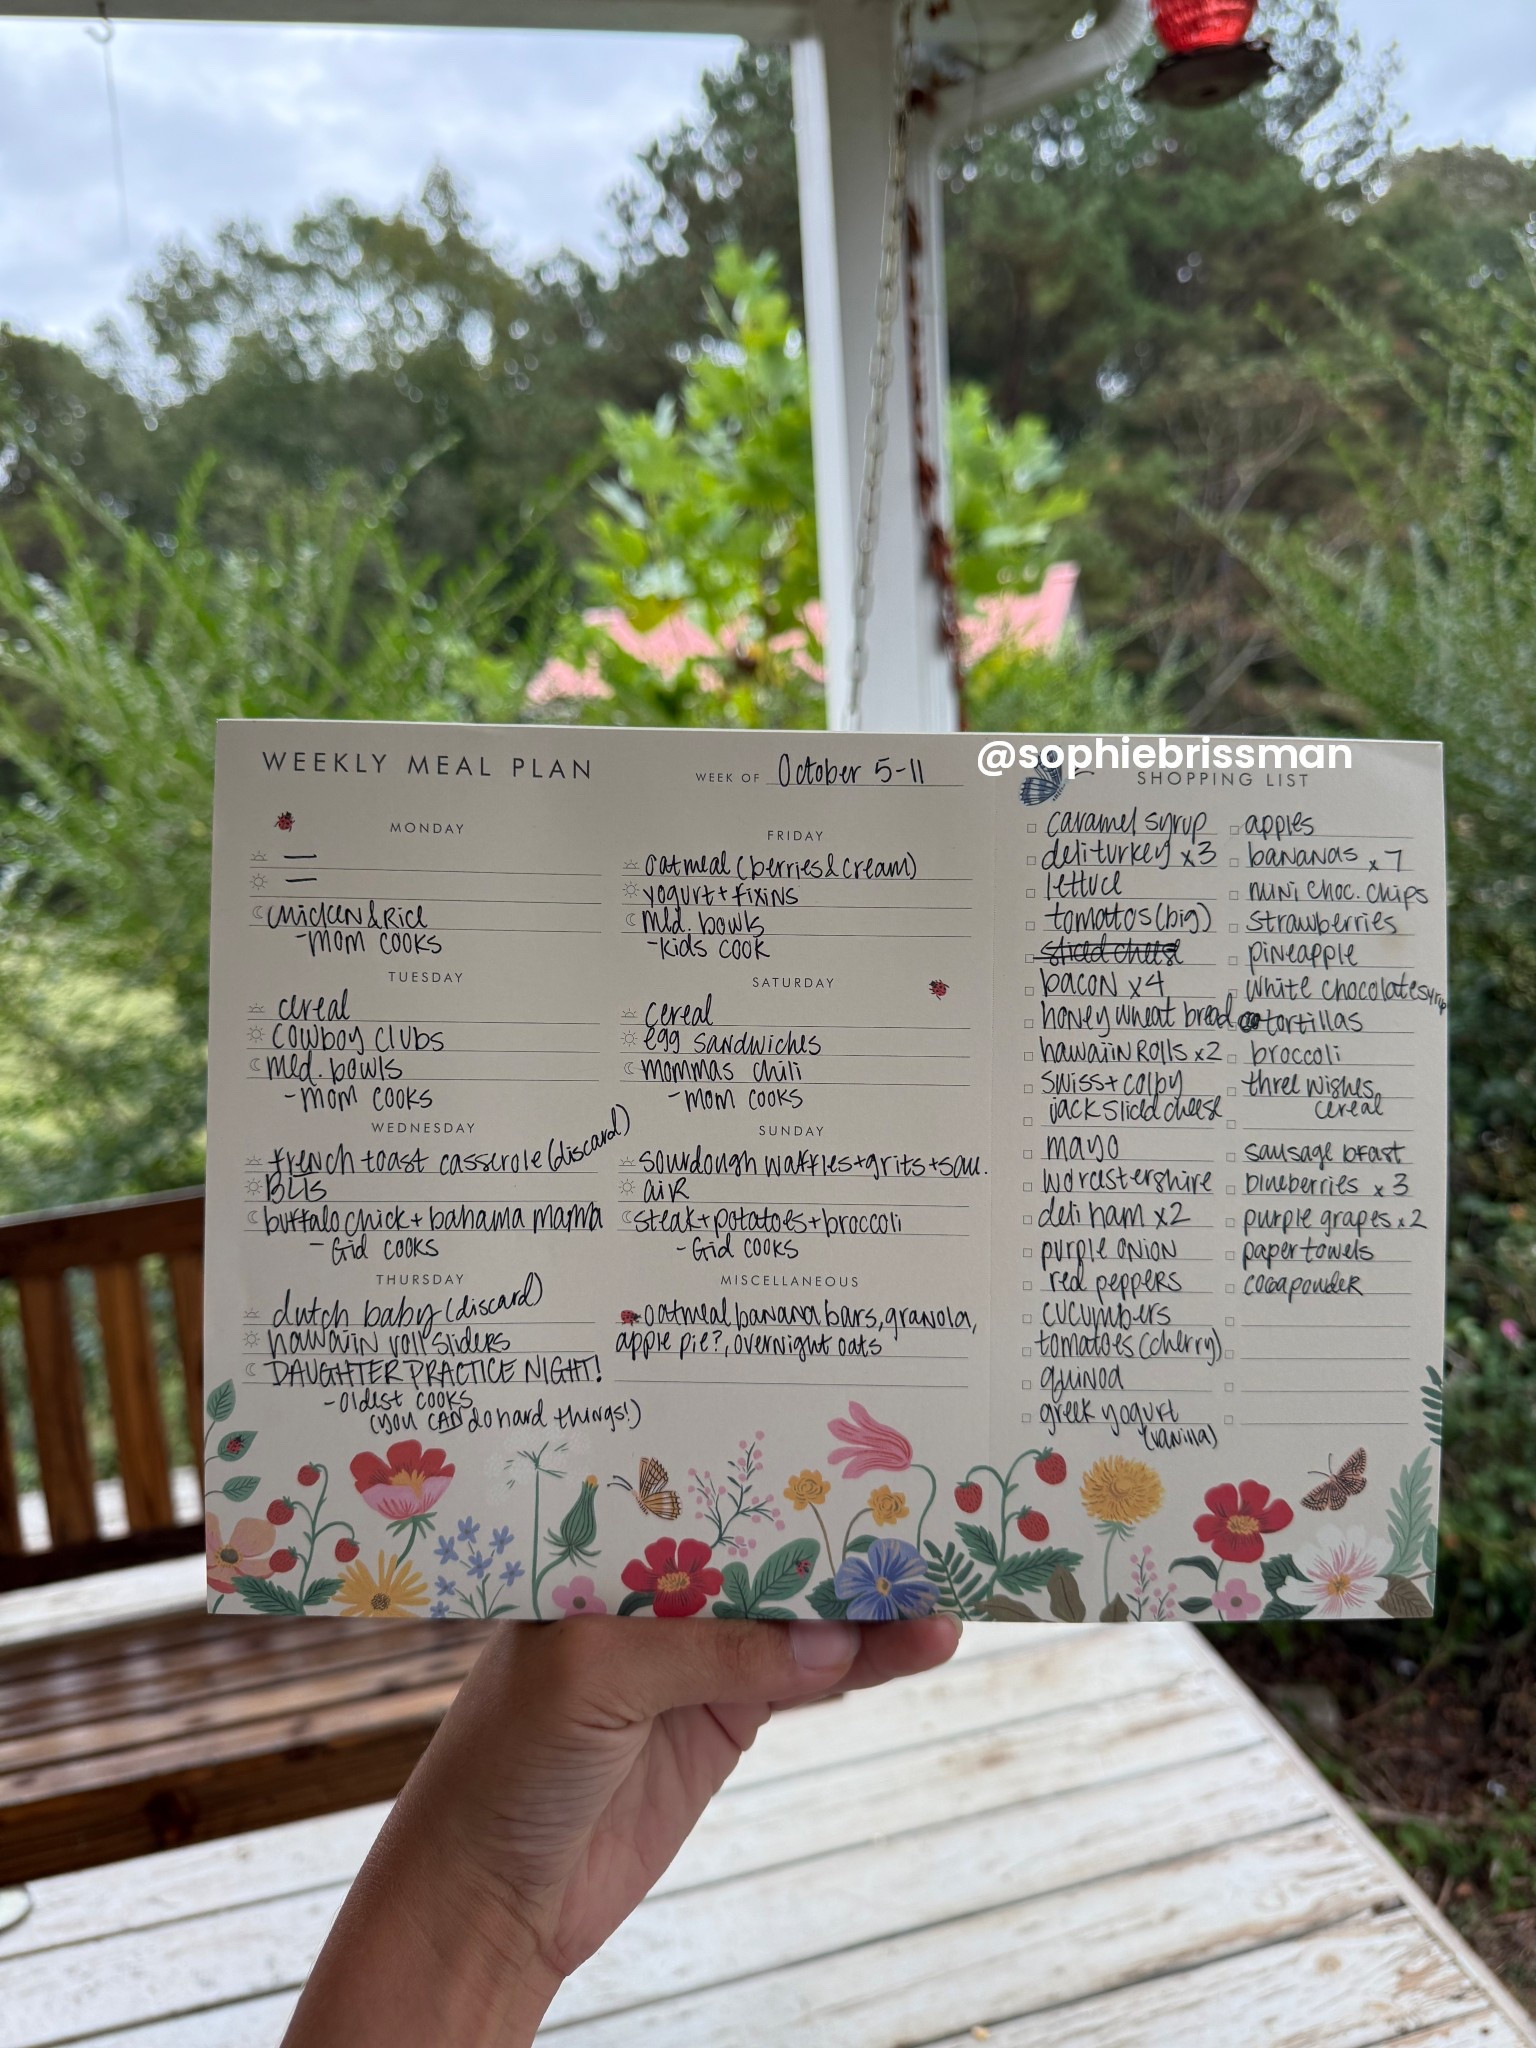 @sophiebrissman
WEEKLY MEAL PLAN
WEEK OF October 5-11
MONDAY
—
—
chicken & Rice
-mom cooks
TUESDAY
cereal
cowboy clubs
med. bowls
-mom cooks
WEDNESDAY
french toast casserole (discard)
BLTs
buffalo chick + bahama mama
- Gid cooks
THURSDAY
dutch baby (discard)
hawaiin roll sliders
DAUGHTER PRACTICE NIGHT!
-oldest cooks
(you CAN do hard things!)
FRIDAY
oatmeal (berries & cream)
yogurt + fixins
med. bowls
-kids cook
SATURDAY
cereal
egg sandwiches
mommas chili
-mom cooks
SUNDAY
sourdough waffles + grits + sau.
air
steak + potatoes + broccoli
-Gid cooks
MISCELLANEOUS
oatmeal banana bars, granola,
apple pie?, overnight oats
SHOPPING LIST
caramel syrup
deli turkey x3
lettuce
tomattos (big)
sliced cheese
bacon x4
honey wheat bread
hawaiin Rolls x2
swiss + colby
jack sliced cheese
mayo
worcestershire
deli ham x2
purple onion
red peppers
cucumbers
tomatoes (cherry)
quinoa
greek yogurt
(vanilla)
apples
bananas x7
mini choc. chips
strawberries
pineapple
white chocolate syrup
tortillas
broccoli
three wishes
cereal
sausage bfast
blueberries x3
purple grapes x2
paper towels
cocoa powder